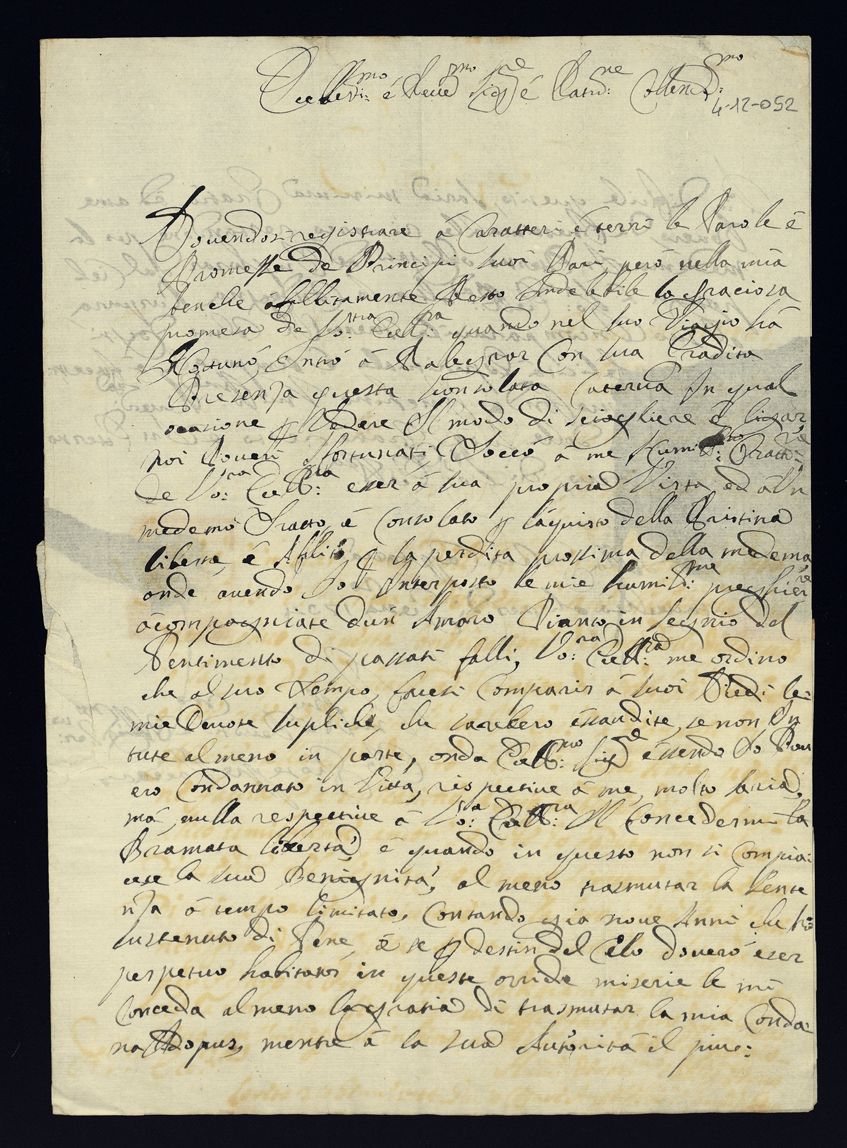 Eccell:mo é Reve:mo Sig:re é Patro:ne Collend:mo
4-12-052
Dovendosi registrare á Caratteri é terri le Parole é
Promesse de Principi suoi Pari però nella mia
benche afflitta mente Resto Indelebile la graciosa
promesa de Vo:stra Ecell:ra quando nel suo Viagio há
Entró á Con sua Gradita
Presenza questa sconsolata Caterva In qual
ocasione p Vedere Il modo di sciogliere é ligar
poi Poveri Sfortunati Toccó á me Humil:mo
de Vo:ra Ecell:ra eser á sua propria Vista ed á Un
medemo Tratto, é Consolato p láquisto della Pristina
liberta, é Aflito p la perdita prossima della medema
onde avendo Io Interposto le mie humil:me preghiere
ácompagniate d'un Amaro Pianto in segnio del
Pentimento di passati falli, Vo:ra Ecell:ra me ordino
che al suo Tempo, facesi Comparir á suoi Piedi le
mie Devote Supliche, che sarebero ésaudite, se non In
tute al meno in parte, onda Ecell:mo Sig:re ésendo Io Pov
ero Condannato in Vitta, respective á me, molto
má, nulla respective á Vo:ra Ecell:ra Il Concedermi la
Bramata libertá, é quando in questo non si Compia:
cese la sua Benignitá, al meno trasmutar la Sente
nza á tempo limitato, Contando giá nove Anni che hó
sustenuto di Pene, é se p destin del Cielo doveró eser
perpetuo habitator in queste orride miserie le mi
Conceda almeno la gratia di trasmutar la mia Conda:
na mentre á la sua Autoritá il piu: